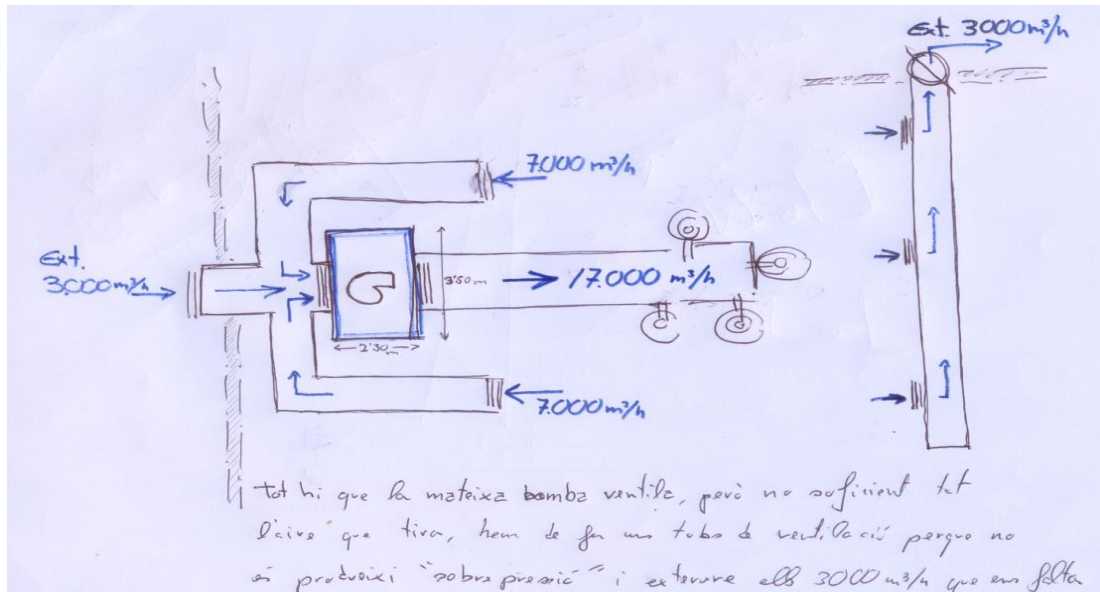 Ext. 3000 m³/h
7.000 m³/h
Ext.
3.000 m³/h
3'50 m
17.000 m³/h
2'30 m
7.000 m³/h
Tot hi que la mateixa bomba ventila, però no suficient tot
l'aire que tira, hem de fer uns tubs de ventilació perque no
es produeixi "sobrepressió" i exteure els 3000 m³/h que ens falta